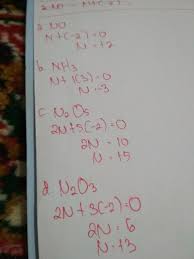 a. NO
N+(-2)=0
N=+2
b. NH3
N+1(3)=0
N=-3
c. N2O5
2N+5(-2)=0
2N=10
N=+5
d. N2O3
2N+3(-2)=0
2N=6
N=+3